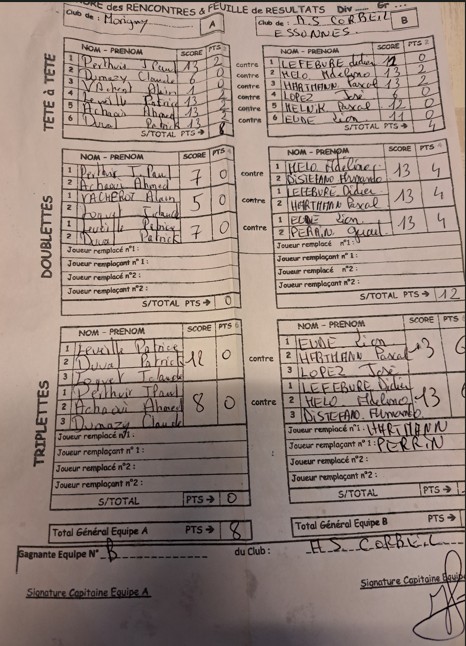 DRE des RENCONTRES & FEUILLE de RESULTATS Div Gr
Club de : Morigny A
Club de : A.S CORBEIL B
ESSONNES.
TÊTE à TÊTE
NOM - PRENOM SCORE PTS
NOM - PRENOM SCORE PTS
1 Perthuis J Paul 13 2 contre 1 LEFEBURE didier 12 0
2 Dumazy Claude 6 0 contre 2 MELO Mdelino 13 2
3 Alain 1 0 contre 3 HARTMANN Pascal 13 2
4 Leveille Patrice 13 2 contre 4 LOPEZ José 6 0
5 Achaoui Ahmed 13 2 contre 5 Pascal 12 0
6 Duval Patrick 13 2 contre 6 EUDE Lion 11 0
S/TOTAL PTS → 8
S/TOTAL PTS → 4
DOUBLETTES
NOM - PRENOM SCORE PTS
NOM - PRENOM SCORE PTS
1 Perthuis J. Paul 7 0 contre 1 MELO 13 4
2 Achaoui Ahmed 2 DISTEFANO
1 VACHEROT Alain 5 0 contre 1 LEFEBURE Didier 13 4
2 2 HARTMANN Pascal
1 Leveille Patrice 7 0 contre 1 EUDE Lion 13 4
2 Duval Patrick 2 PERRIN
Joueur remplacé n°1 :
Joueur remplaçant n°1 :
Joueur remplacé n°2 :
Joueur remplaçant n°2 :
Joueur remplacé n°1 :
Joueur remplaçant n°1 :
Joueur remplacé n°2 :
Joueur remplaçant n°2 :
S/TOTAL PTS → 0
S/TOTAL PTS → 12
TRIPLETTES
NOM - PRENOM SCORE PTS
NOM - PRENOM SCORE PTS
1 Leveille Patrice 1 EUDE Lion
2 Duval Patrick 12 0 contre 2 HARTMANN Pascal 13
3 3 LOPEZ José
1 Perthuis J Paul 1 LEFEBURE Didier
2 Achaoui Ahmed 8 0 contre 2 MELO Mdelino 13
3 Dumazy Claude 3 DISTEFANO
Joueur remplacé n°1 :
Joueur remplaçant n°1 :
Joueur remplacé n°2 :
Joueur remplaçant n°2 :
Joueur remplacé n°1 : HARTMANN
Joueur remplaçant n°1 : PERRIN
Joueur remplacé n°2 :
Joueur remplaçant n°2 :
S/TOTAL PTS → 0
S/TOTAL PTS →
Total Général Equipe A PTS → 8
Total Général Equipe B PTS →
Gagnante Equipe N° B du Club : A.S. CORBEIL
Signature Capitaine Equipe A
Signature Capitaine Equipe